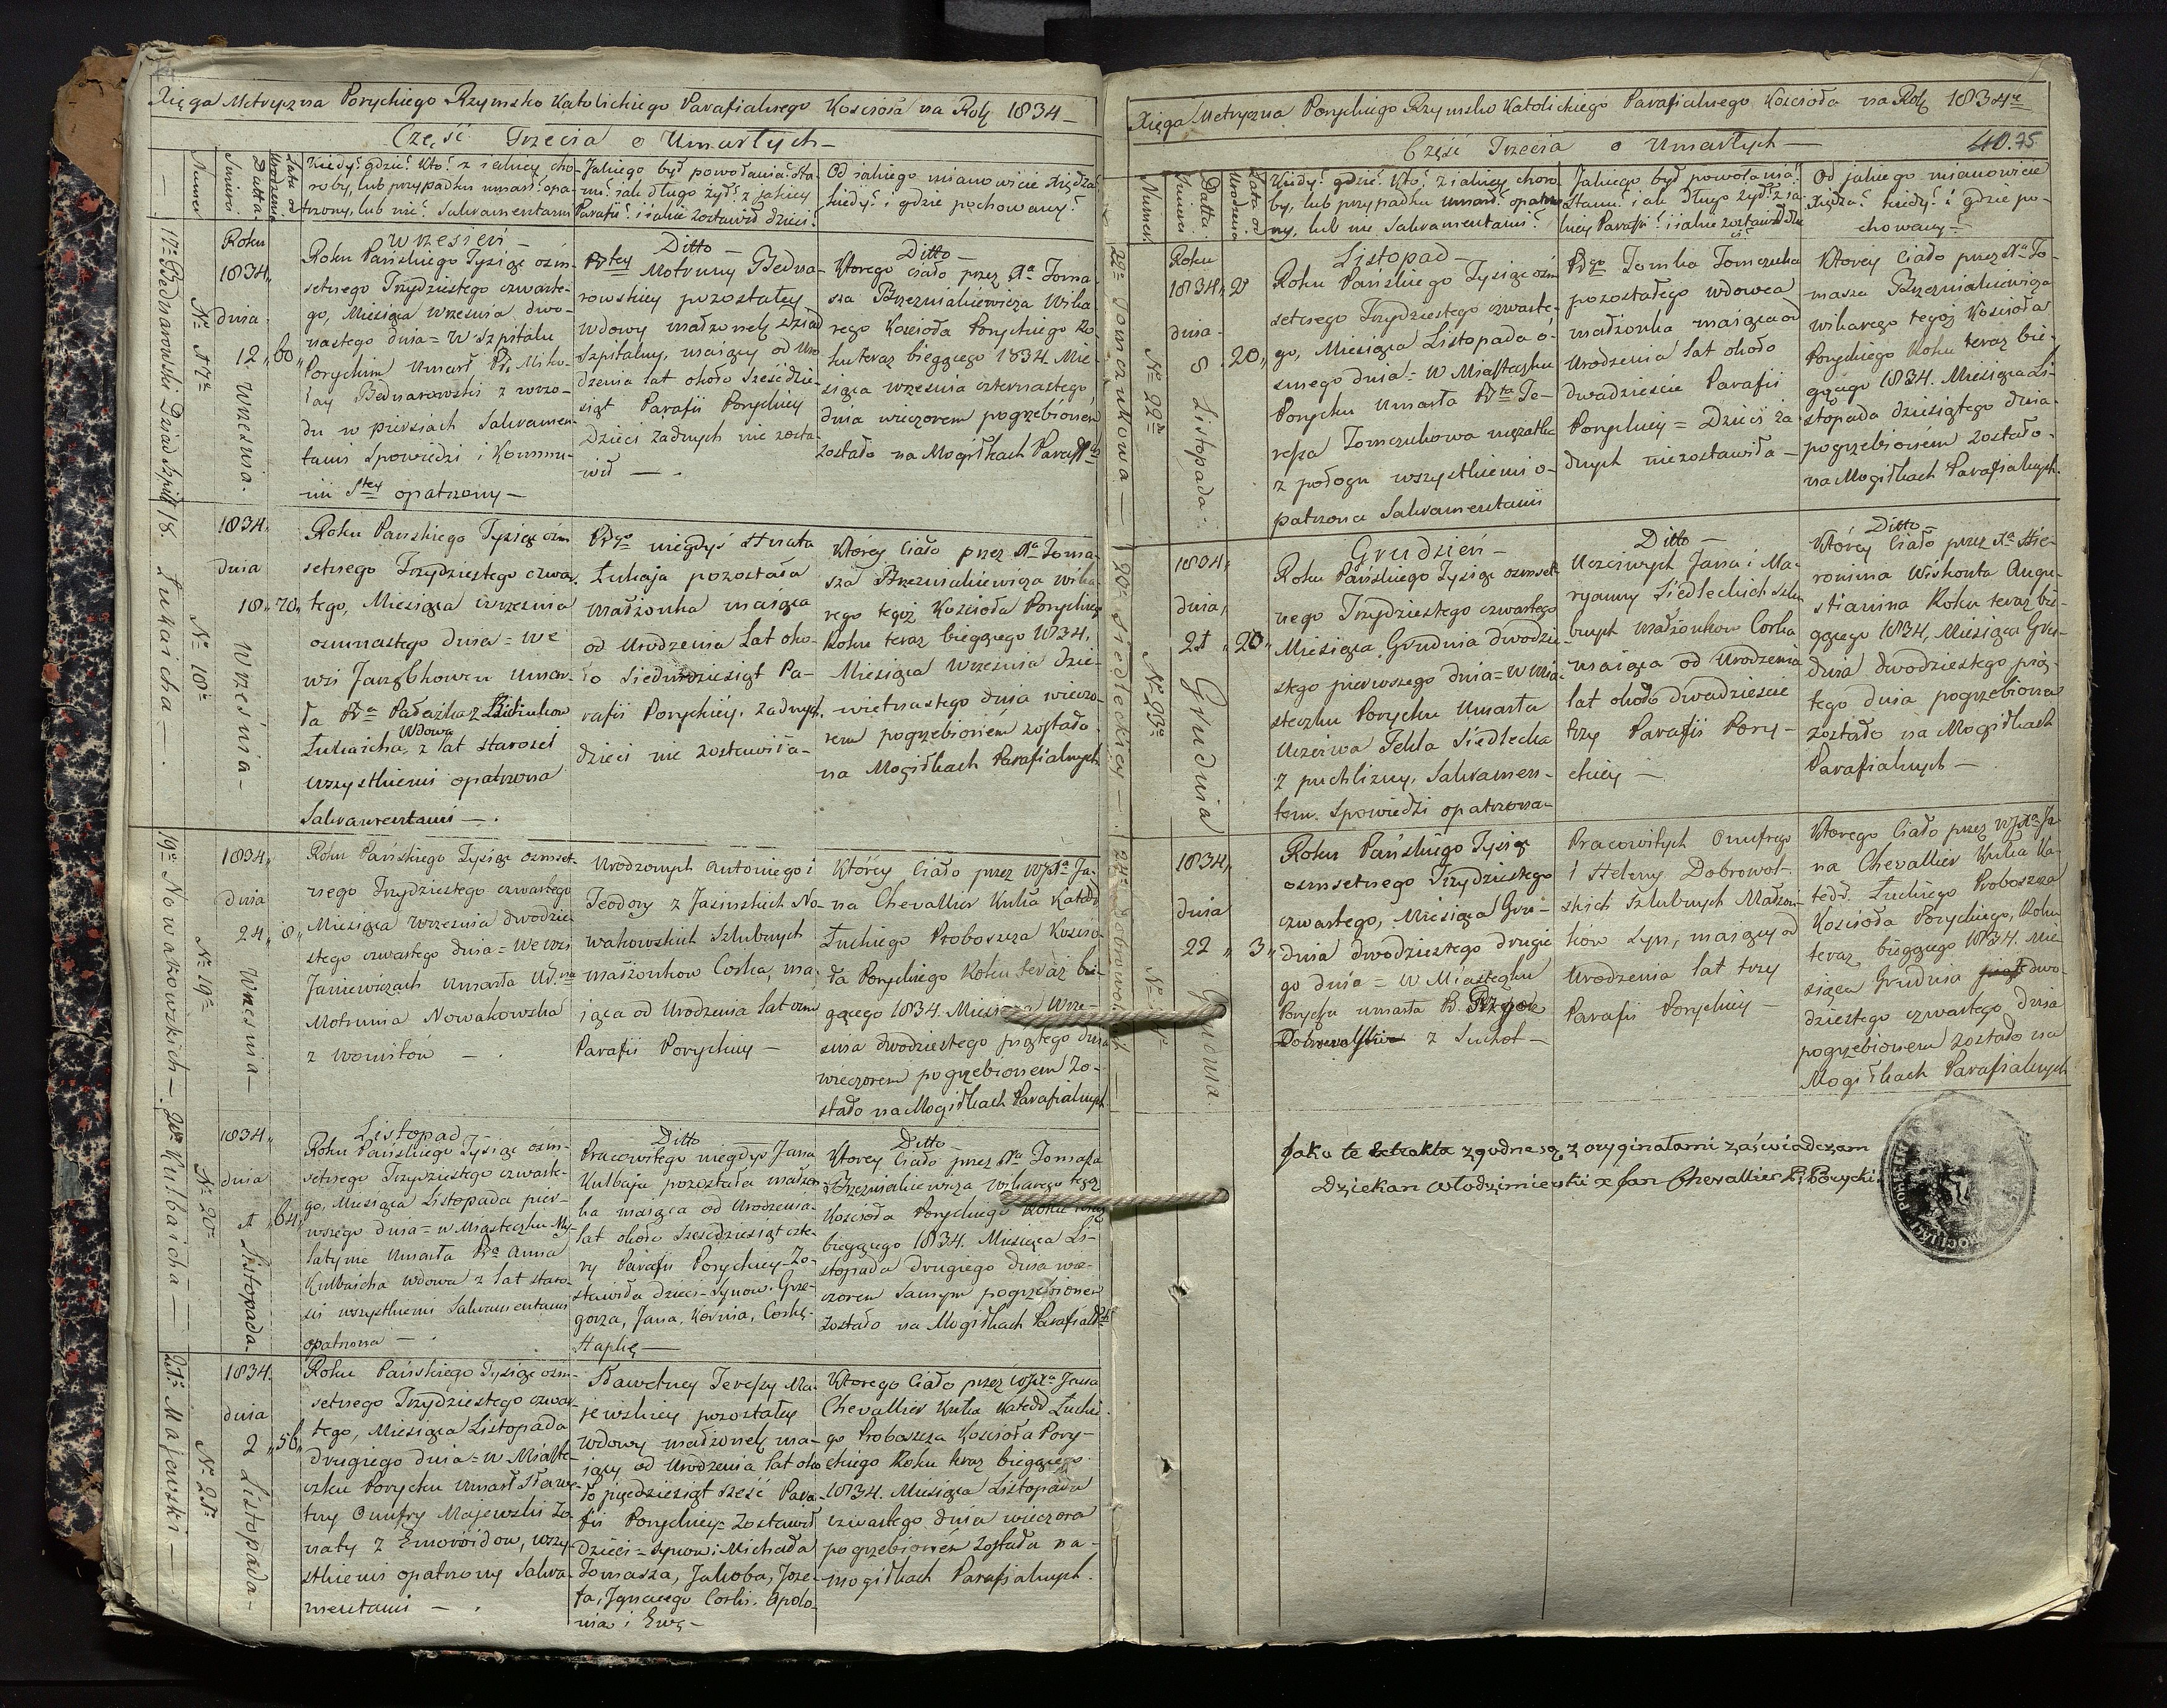 Xięga Metryczna Poryckiego Rzymsko Katolickiego Parafialnego Kościoła na Rok 1834
Część Trzecia o Umarłych
Numer
Datta Śmierci
Lata od Urodzenia
Kiedy? gdzie? Kto? z iakiey cho-
roby, lub przypadku umarł? opa-
trzony, lub nie? Sakramentami
Jakiego był powołania? Sta-
nu? iak długo żył? z jakiey
Parafii? i iakie zostawił dzieci?
Od iakiego mianowicie Xiędza?
kiedy? i gdzie pochowany?
17. Bednarowski Dziad Szpitl
Nr 17
Roku
1834
dnia
12 Września
60
Wrzesień
Roku Pańskiego Tysiąc ośm-
setnego Trzydziestego czwarte-
go, Miesiąca Września dwu-
nastego dnia = w Szpitalu
Poryckim Umarł Pr. Miko-
łay Bednarowski z wrzo-
du w piersiach Sakramen-
tami Spowiedzi i Kommu-
nii Stey opatrzony
Ditto
Motruny Bedna-
rowskiey pozostałey
Wdowy małżonek dziad
Szpitalny, maiący od Uro-
dzenia lat około sześćdzie-
siąt Parafii Poryckiey
Dzieci żadnych nie zosta-
wił
Ditto
Ktorego Ciało przez Xa Toma-
sza Brzezniakiewicza Wika-
rego Kościoła Poryckiego Ro-
ku teraz bieżącego 1834. Mie-
siąca Września czternastego
dnia wieczorem pogrzebionem
zostało na Mogiłkach Parafil
18. Łukaicha
Nr 18
1834
dnia
18 Września
70
Roku Pańskiego Tysiąc ośm
setnego Trzydziestego czwar-
tego, Miesiąca Września
osmnastego dnia = we
wsi Jarzębkowcu Umar-
ła Pa Pałażka z
Wdowa
Łukaicha, z lat starości
wszystkiemi opatrzona
Sakramentami
niegdyś Hnata
Łukaja pozostała
Małżonka maiąca
od Urodzenia lat oko-
ło Siedmdziesiąt Pa-
rafii Poryckiey. Żadnych
dzieci nie zostawiła
Którey Ciało przez Xa Toma-
sza Brzezniakiewicza wika-
rego tegoż Kościoła Poryckiego
Roku teraz bieżącego 1834.
Miesiąca Września dzie-
wietnastego dnia wieczo-
rem pogrzebioném zostało
na Mogiłkach Parafialnych
19. Nowakowskich
Nr 19
1834
dnia
24 Września
8
Roku Pańskiego Tysiąc ośmset-
nego Trzydziestego czwartego
Miesiąca Września dwudzie-
stego czwartego dnia = we wsi
Janiewiczach umarła Ur.na
Motrunia Nowakowska
z womitów
Urodzonych Antoniego i
Teodory z Jasinskich No-
wakowskich Szlubnych
małżonkow Corka, ma-
iąca od Urodzenia lat osm
Parafii Poryckiey
Którey Ciało przez WJXa Ja-
na Chevallier Kuka Katedd
Łuckiego Proboszcza Kościo-
ła Poryckiego Roku teraz bie-
żącego 1834. Miesiąca Wrze-
snia dwudziestego piątego dnia
wieczorem pogrzebionem zo-
stało na Mogiłkach Parafialnych
20. Kulbaicha
Nr 20
1834
dnia
1 Listopada
64
Listopad
Roku Pańskiego Tysiąc ośm-
setnego Trzydziestego czwarte-
go, Miesiąca Listopada pier-
wszego dnia = w Miasteczku My-
latynie Umarła Pa Anna
Kulbaicha wdowa z lat staro-
ści wszystkiemi Sakramentami
opatrzona
Ditto
Pracowitego niegdyś Jana
Kulbaja pozostała małżon-
ka maiąca od Urodzenia
lat około Sześćdziesiąt czte-
ry Parafii Poryckiey Zo-
stawiła dzieci = Synow: Grze-
gorza, Jana, Kornia, Corkę
Haplię
Ditto
Ktorey Ciało przez Xa Tomasza
Brzezniakiewicza wikarego tegoż
Kościoła Poryckiego Roku teraz
bieżącego 1834. Miesiąca Li-
stopada drugiego dnia wie-
czorem samym pogrzebionem
zostało na Mogiłkach Parafial
21. Majewski
Nr 21
1834
dnia
2 Listopada
56
Roku Pańskiego Tysiąc ośm-
setnego Trzydziestego czwar-
tego, Miesiąca Listopada
drugiego dnia = w Miaste-
czku Porycku Umarł Sławe-
tny Onufry Majewski Żo-
naty z Emoroidow, wszy-
stkiemi opatrzony Sakra-
mentami
Sławetney Teresy Ma-
jewskiey pozostałey
Wdowy małżonek ma-
iący od Urodzenia lat oko-
ło pięćdziesiąt sześć Para-
fii Poryckiey = Zostawił
Dzieci = Synow: Michała
Tomasza, Jakoba, Joze-
fa, Ignacego Corki. Apolo-
nia i Ewę
Ktorego Ciało przez WJXa Jana
Chevallier Kuka Katedd Łuckie-
go Proboszcza Kościoła Pory-
ckiego Roku teraz bieżącego
1834. Miesiąca Listopada
czwartego dnia wieczora
pogrzebioném zostało na
mogiłkach Parafialnych.
Xięga Metryczna Poryckiego Rzymsko Katolickiego Parafialnego Kościoła na Rok 1834
Część Trzecia o Umarłych
40. 75
Numer
Datta Śmierci
Lata od Urodzenia
Kiedy? gdzie? Kto? z iakiey choro-
by, lub przypadku umarł? opatrzo-
ny, lub nie Sakramentami?
Jakiego był powołania?
Stanu? i iak długo żył? z ia-
kiey Parafii? i iakie zostawił dzie
ci?
Od jakiego mianowicie
Xiędza? kiedy? i gdzie po-
chowany?
22. Tomczukowa
Nr 22
Roku
1834
dnia
8 Listopada
20
Listopad
Roku Pańskiego Tysiąc ośm
setnego Trzydziestego czwarte-
go, Miesiąca Listopada ó-
smego dnia = w Miasteczku
Porycku Umarła Pta Te-
resa Tomczukowa mężatka
z połogu wszystkiemi o-
patrzona Sakramentami
Pgo Tomka Tomczuka
pozostałego wdowca
małżonka maiąca od
Urodzenia lat około
dwadzieście Parafii
Poryckiey = Dzieci ża
dnych niezostawiła
Ktorey Ciało przez Xa To-
masza Brzezniakiewicza
wikarego tegoż Kościoła
Poryckiego Roku teraz bie-
żącego 1834. Miesiąca Li-
stopada dziesiątego dnia
pogrzebioném zostało
na Mogiłkach Parafialnych.
23. Siedleckiey
Nr 23
1834
dnia
21 Grudnia
Grudzień
Roku Pańskiego Tysiąc osmset-
nego Trzydziestego czwartego
Miesiąca Grudnia dwudzie-
stego pierwszego dnia = w Mia-
steczku Porycku Umarła
Uczciwa Tekla Siedlecka
z puchlizny, Sakramen-
tem Spowiedzi opatrzona
Ditto
Uczciwych Jana i Ma-
ryanny Siedleckich szlu
bnych małżonkow Corka
maiąca od Urodzenia
lat około dwadzieście
trzy Parafii Pory-
ckiey
Ditto
Ktorey Ciało przez Xa Hie-
ronima Wiskonta Augu-
stianina Roku teraz bie-
żącego 1834, Miesiąca Gru-
dnia dwudziestego pią-
tego dnia pogrzebione
zostało na Mogiłkach
Parafialnych
1834
dnia
22 Grudnia
3
Roku Pańskiego Tysiąc
osmsetnego Trzydziestego
czwartego, Miesiąca Gru-
dnia dwudziestego drugie
go dnia = w Miasteczku
Porycku umarła
z Suchot
Pracowitych Onufrego
i Heleny Dobrowol-
skich szlubnych Małżon-
ków Syn, maiący od
Urodzenia lat trzy
Parafii Poryckiey
Ktorego Ciało przez WJXa Ja
na Chevallier Kuka Ka-
tedd. Łuckiego Proboszcza
Kościoła Poryckiego, Roku
teraz bieżącego 1834. Mie
siąca Grudnia dwu-
dziestego czwartego dnia
pogrzebionem zostało na
Mogiłkach Parafialnych
Jako te Extrakta zgodne są z oryginałami zaświadczam
Dziekan Włodzimierski X Jan Chevallier P. Porycki